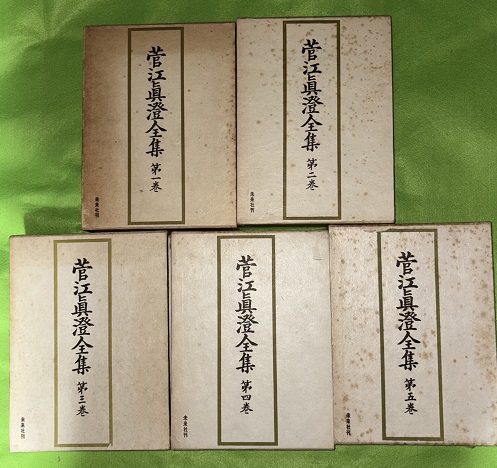 菅江眞澄全集 第一巻
未来社刊
菅江眞澄全集 第二巻
未来社刊
菅江眞澄全集 第三巻
未来社刊
菅江眞澄全集 第四巻
未来社刊
菅江眞澄全集 第五巻
未来社刊